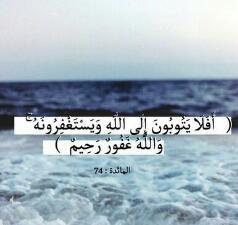 ( أَفَلَا يَتُوبُونَ إِلَى اللَّهِ وَيَسْتَغْفِرُونَهُ ۚ
وَاللَّهُ غَفُورٌ رَحِيمٌ )
المائدة : 74